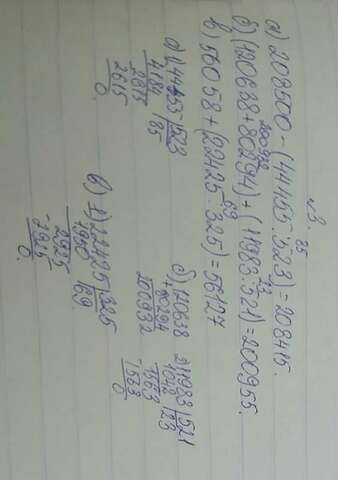 №3.
85
а) 208500 - (44455 : 523) = 208415.
200932 23
б) (120638 + 80294) + (11983 : 521) = 200955.
69
в) 56058 + (22425 : 325) = 56127
а) 1) 44455 | 523
4184 85
2615
2615
0.
б) 1) 120638
+ 80294
200932
2) 11983 | 521
1042 23
1563
-1563
0
в) 1) 22425 | 325
1950 69.
2925
-2925
0.